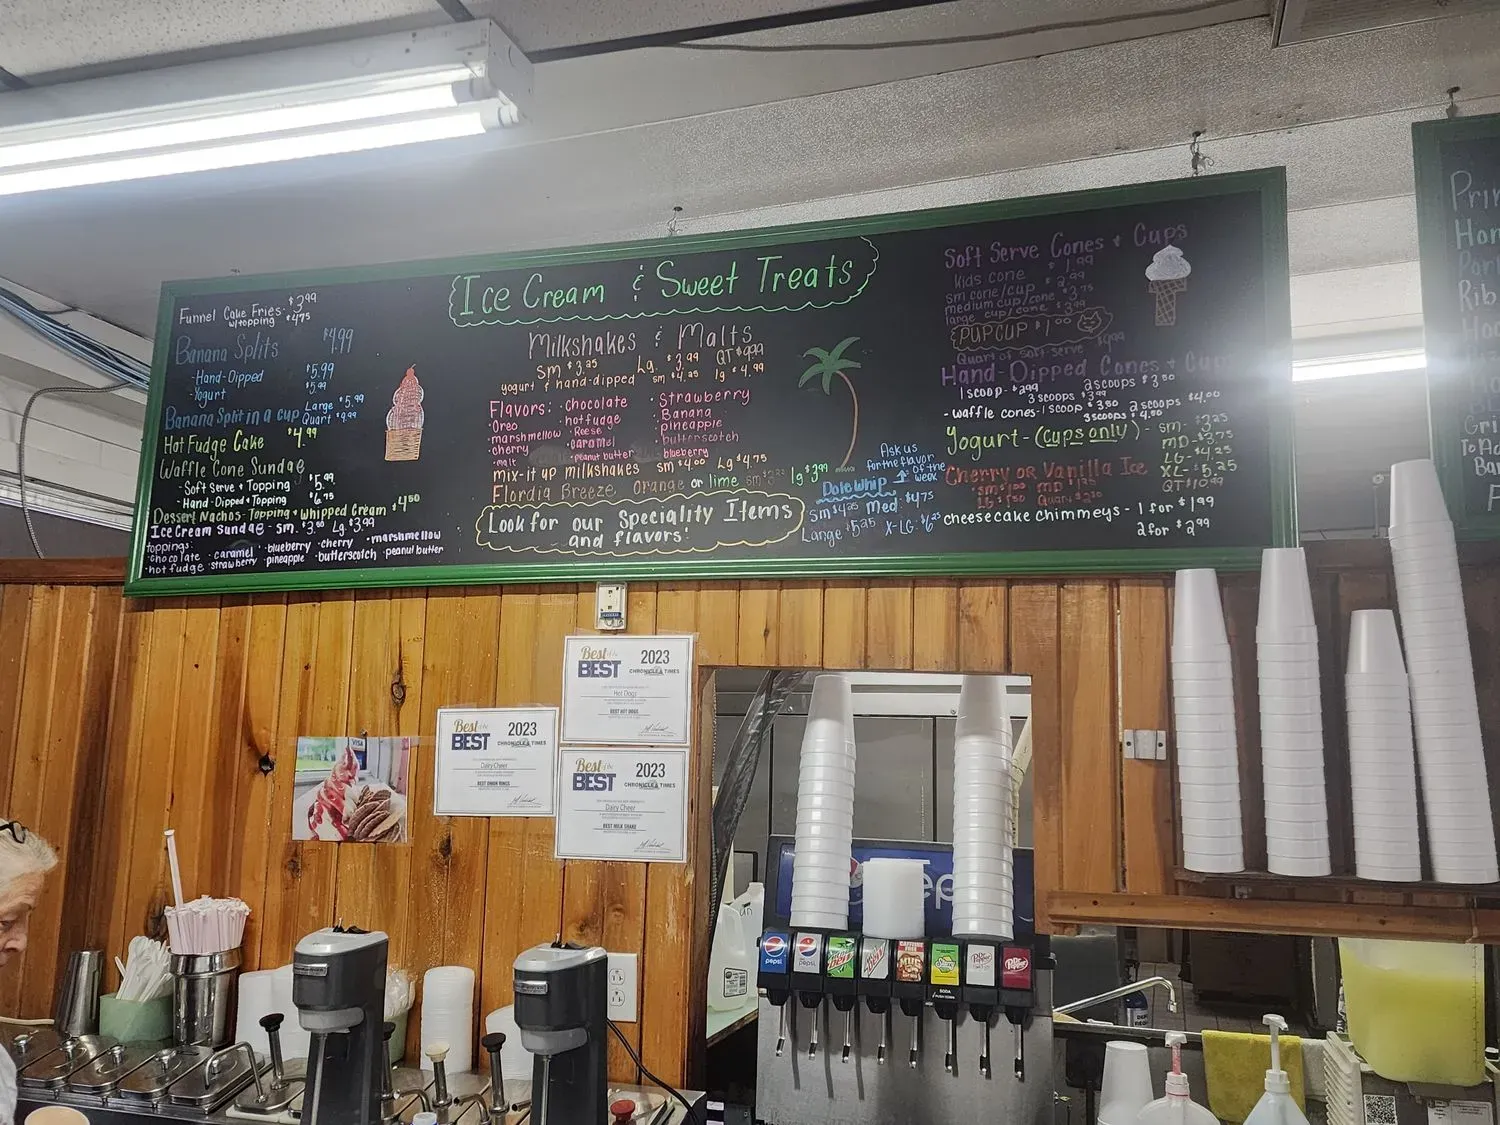 Ice Cream & Sweet Treats
Funnel Cake Fries: $3.99
w/topping $4.75
Banana Splits $4.99
-Hand-Dipped $5.99
-Yogurt $5.99
Banana Split in a cup Large $5.99
Quart $9.99
Hot Fudge Cake $4.99
Waffle Cone Sundae
-Soft Serve + Topping $5.99
-Hand-Dipped + Topping $6.75
Dessert Nachos-Topping + Whipped Cream $4.50
Ice Cream Sundae - Sm. $3.50 Lg. $3.99
toppings:
•chocolate •caramel •blueberry •cherry •marshmellow
•hot fudge •strawberry •pineapple •butterscotch •peanut butter
Milkshakes & Malts
Sm $3.25 Lg. $3.99 QT $9.99
yogurt & hand-dipped sm $4.25 lg $4.99
Flavors: •Chocolate •Strawberry
•Oreo •hot fudge •Banana
•marshmellow •Reese •pineapple
•cherry •caramel •butterscotch
•malt •peanut butter •blueberry
mix-it up milkshakes sm $4.00 Lg $4.75
Flordia Breeze Orange or lime sm lg $3.99
Look for our Speciality Items
and flavors!
Ask us
for the flavor
of the
week
Dole Whip
Sm $4.25 Med: $4.75
Large $5.25 X-LG: $6.25
Soft Serve Cones + Cups
Kids cone $1.99
sm cone/cup $2.99
medium cup/cone $3.75
large cup/cone $3.99
PUPCUP $1.00
Quart of Soft-serve $9.99
Hand-Dipped Cones + Cups
1 scoop - $2.99 2 scoops $3.50
3 scoops $3.99
-waffle cones-1 scoop $3.50 2 scoops $4.00
3 scoops $4.50
Yogurt-(cups only)- sm- $3.25
MD- $3.75
LG- $4.25
XL- $5.25
QT $10.99
Cherry or Vanilla Ice
sm $1.00 MD $1.25
LG $1.50 Quart
cheesecake chimmeys - 1 for $1.99
2 for $2.99
Best of the
BEST
2023
CHRONICLE & TIMES
Hot Dogs
BEST HOT DOGS
Best of the
BEST
2023
CHRONICLE & TIMES
Dairy Cheer
BEST ONION RINGS
Best of the
BEST
2023
CHRONICLE & TIMES
Dairy Cheer
BEST MILK SHAKE
VISA
pepsi
pepsi
CAFFEINE FREE
MUG
Dr Pepper
SODA